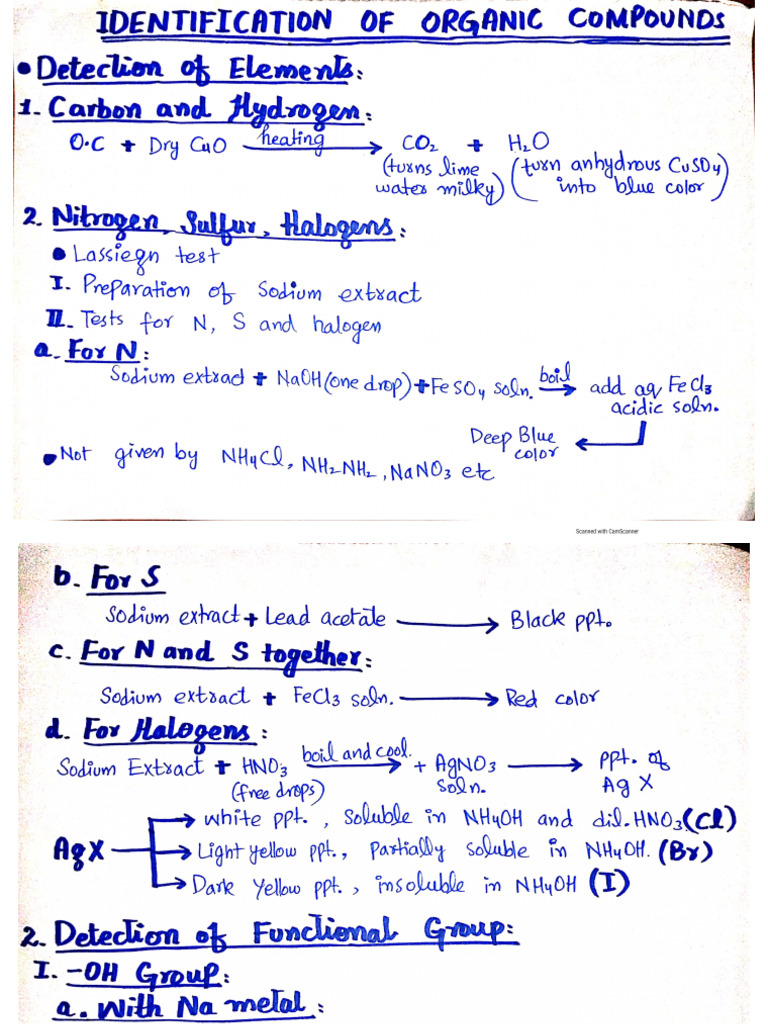 IDENTIFICATION OF ORGANIC COMPOUNDS
• Detection of Elements:
1. Carbon and Hydrogen:
O.C + Dry CuO heating → CO2 + H2O
(turns lime water milky) (turn anhydrous CuSO4 into blue color)
2. Nitrogen, Sulfur, Halogens:
• Lassiegn test
I. Preparation of Sodium extract
II. Tests for N, S and halogen
a. For N:
Sodium extract + NaOH (one drop) + FeSO4 soln. boil → add aq FeCl3
acidic soln.
Deep Blue color ←
• Not given by NH4Cl, NH2NH2, NaNO3 etc
Scanned with CamScanner
b. For S
Sodium extract + Lead acetate → Black ppt.
c. For N and S together:
Sodium extract + FeCl3 soln. → Red color
d. For Halogens:
Sodium Extract + HNO3 boil and cool. → + AgNO3 → ppt. of
(free drops) soln. Ag X
→ white ppt., Soluble in NH4OH and dil. HNO3 (Cl)
AgX → Light yellow ppt., Partially soluble in NH4OH. (Br)
→ Dark yellow ppt., insoluble in NH4OH (I)
2. Detection of Functional Group:
I. -OH Group:
a. With Na metal: